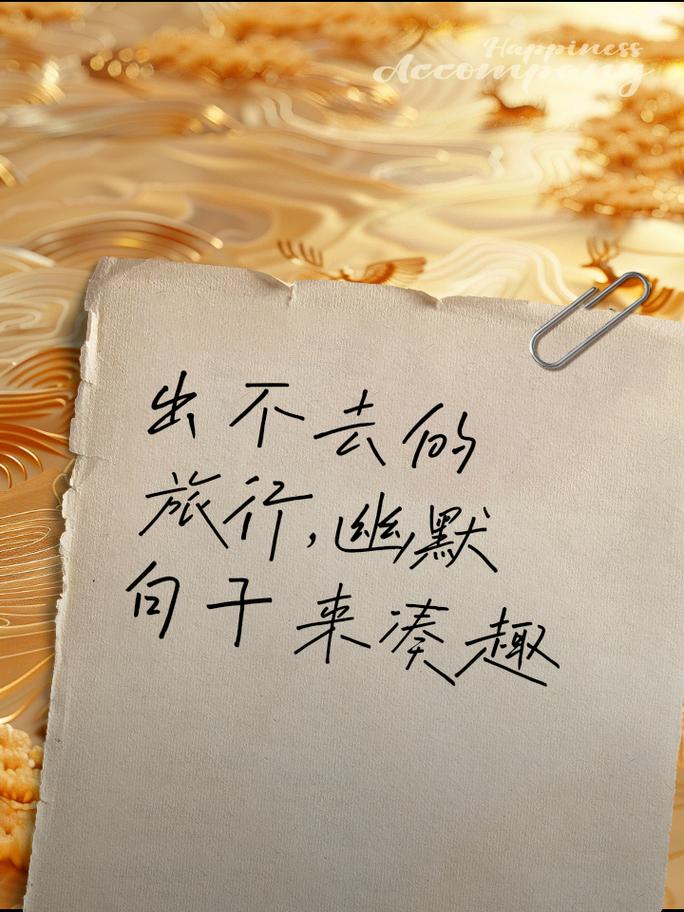 Happiness
Accompany
出不去的
旅行,幽默
句子来凑趣